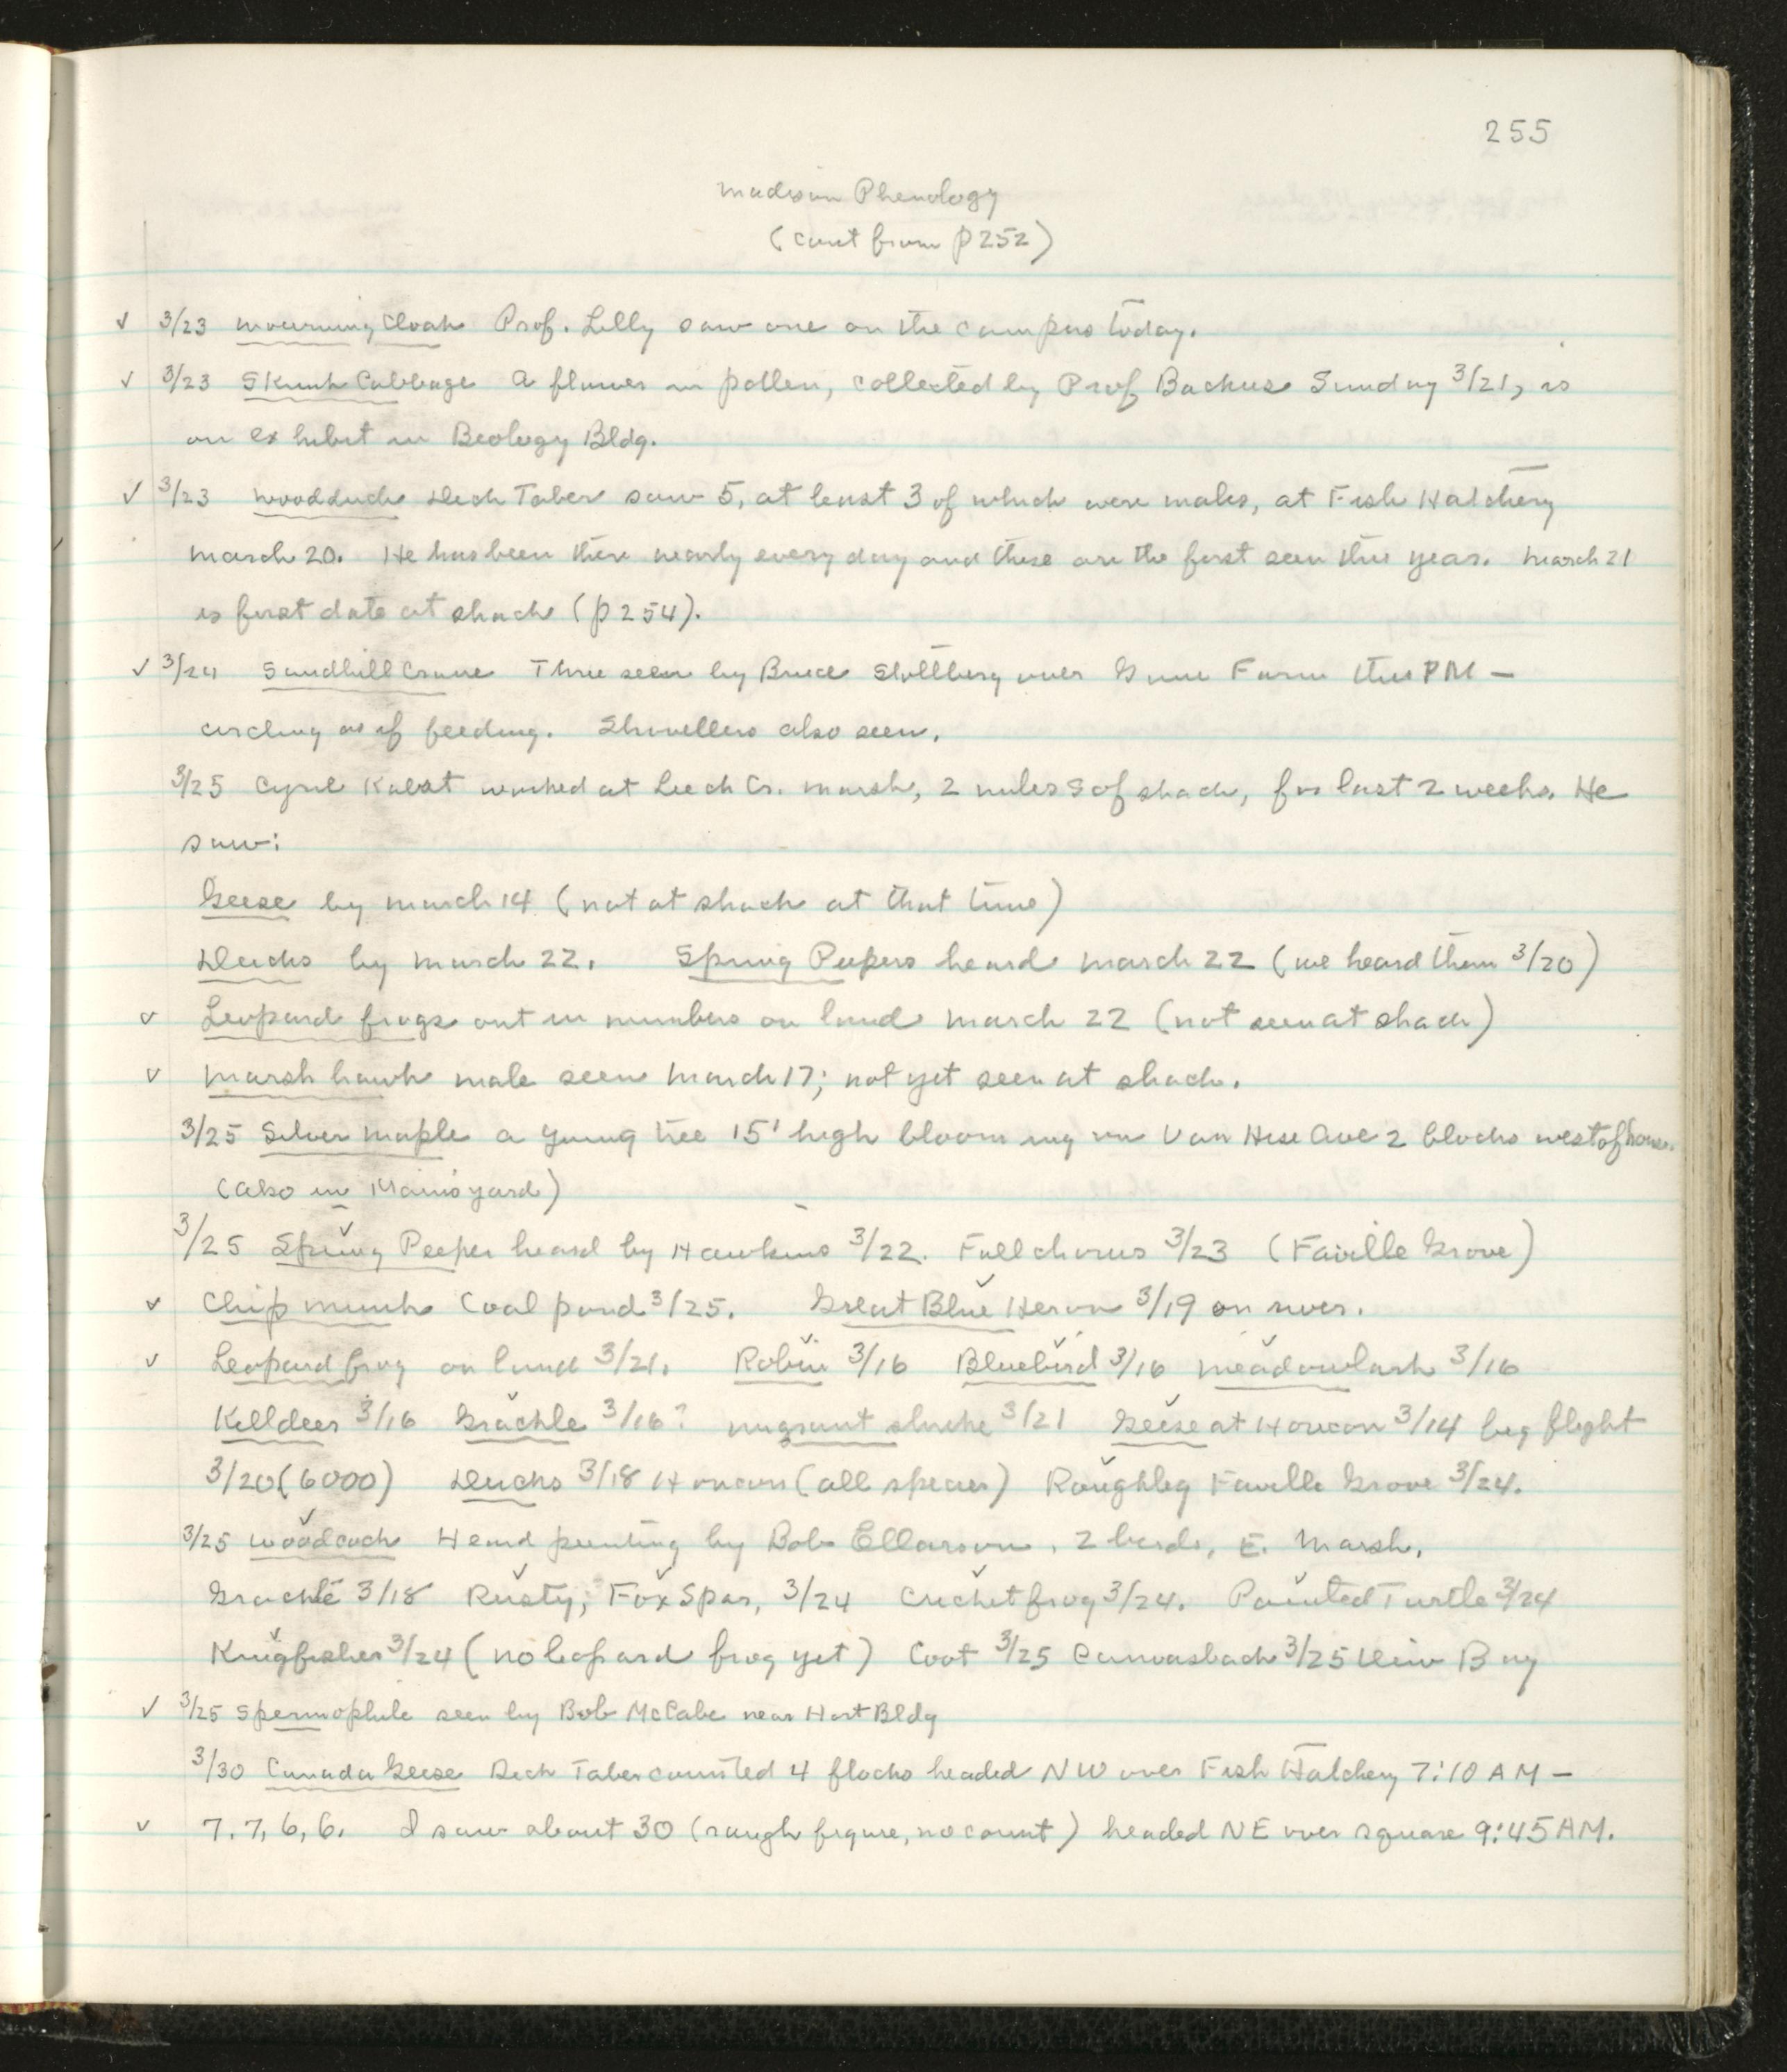 255
Madison Phenology
(cont from p 252)
✓ 3/23 Mourning Cloak Prof. Lilly saw one on the campus today.
✓ 3/23 Skunk Cabbage A flower in pollen, collected by Prof Backus Sunday 3/21, is
on exhibit in Biology Bldg.
✓ 3/23 Woodduck Dick Taber saw 5, at least 3 of which were males, at Fish Hatchery
March 20. He has been there nearly every day and these are the first seen this year. March 21
is first date at shack (p 254).
✓ 3/24 Sandhill Crane Three seen by Bruce Stollberg over Game Farm this PM —
circling as if feeding. Shovellers also seen.
3/25 Cyril Kabat worked at Leech Cr. marsh, 2 miles S of shack, for last 2 weeks. He
saw:
Geese by March 14 (not at shack at that time)
Ducks by March 22. Spring Peepers heard March 22 (we heard them 3/20)
✓ Leopard frogs out in numbers on land March 22 (not seen at shack)
✓ Marsh hawk male seen March 17; not yet seen at shack.
3/25 Silver Maple a young tree 15' high blooming on Van Hise Ave 2 blocks west of house.
(also in yard)
3/25 Spring Peeper heard by Hawkins 3/22. Full chorus 3/23 (Faville Grove)
✓ Chipmunk Coal pond 3/25. Great Blue Heron 3/19 on river.
✓ Leopard frog on land 3/21. Robin 3/16 Bluebird 3/16 Meadowlark 3/16
Killdeer 3/16 Grackle 3/16? Migrant shrike 3/21 Geese at Horicon 3/14 big flight
3/20 (6000) Ducks 3/18 Horicon (all species) Roughleg Faville Grove 3/24.
3/25 Woodcock Heard peenting by Bob Ellarson, 2 birds, E. Marsh.
Grackle 3/18 Rusty, Fox Spar, 3/24 Cricket frog 3/24. Painted Turtle 3/24
Kingfisher 3/24 (no leopard frog yet) Coot 3/25 Canvasback 3/25 Univ Bay
✓ 3/25 Spermophile seen by Bob McCabe near Hort Bldg
3/30 Canada Geese Dick Taber counted 4 flocks headed NW over Fish Hatchery 7:10 AM —
✓ 7, 7, 6, 6. I saw about 30 (rough figure, no count) headed NE over square 9:45 AM.